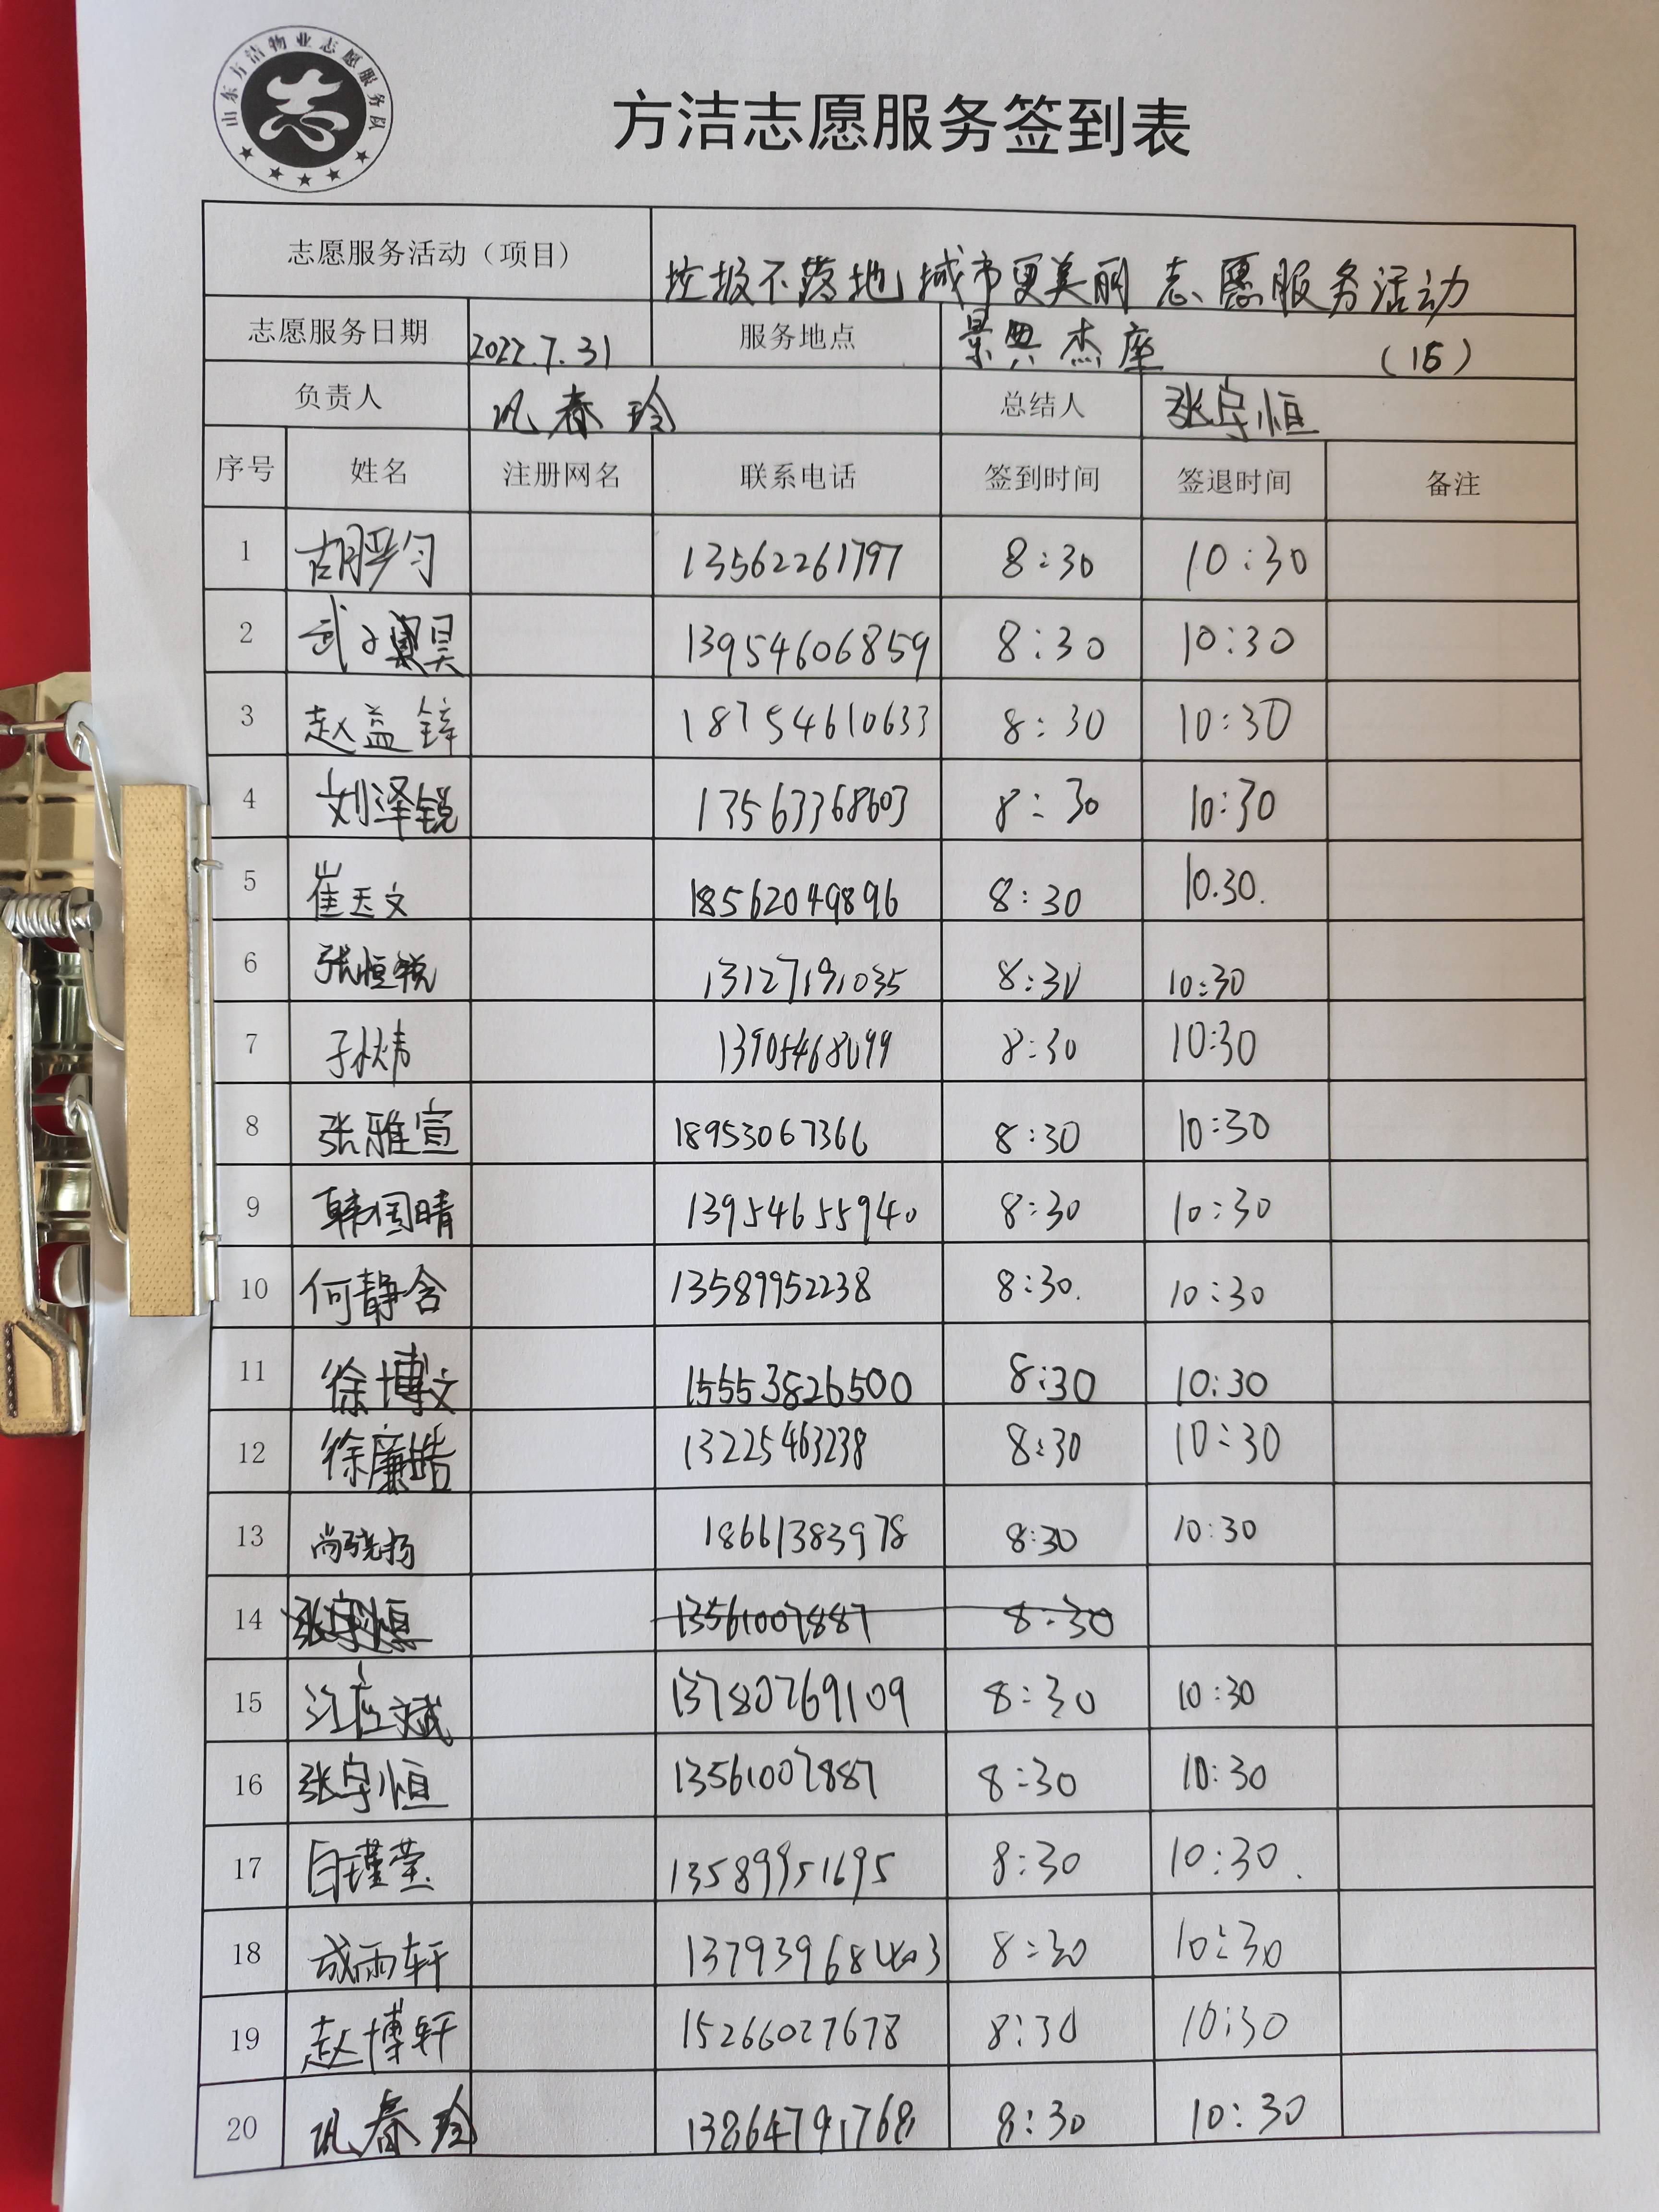 山东方洁物业志愿服务队
方洁志愿服务签到表
志愿服务活动（项目） 垃圾不落地 城市更美丽 志愿服务活动
志愿服务日期 2022.7.31 服务地点 景典杰座 （15）
负责人 巩春玲 总结人 张宇恒
序号 姓名 注册网名 联系电话 签到时间 签退时间 备注
1 13562261797 8:30 10:30
2 13954606859 8:30 10:30
3 赵益锌 18754610633 8:30 10:30
4 刘泽锐 13563368603 8:30 10:30
5 崔玉文 18562049896 8:30 10.30.
6 张恒锐 13127191035 8:30 10:30
7 13905468099 8:30 10:30
8 张雅宣 18953067366 8:30 10:30
9 韩国晴 13954655940 8:30 10:30
10 何静含 13589952238 8:30. 10:30
11 徐博文 15553826500 8:30 10:30
12 徐廉皓 13225463238 8:30 10:30
13 尚骁扬 18661383978 8:30 10:30
14 张宇恒 13561007887 8:30
15 江应斌 13780769109 8:30 10:30
16 张宇恒 13561007887 8:30 10:30
17 白瑾莹 13589951695 8:30 10:30.
18 成雨轩 8:30 10:30
19 赵博轩 15266027678 8:30 10:30
20 巩春玲 13864791768 8:30 10:30